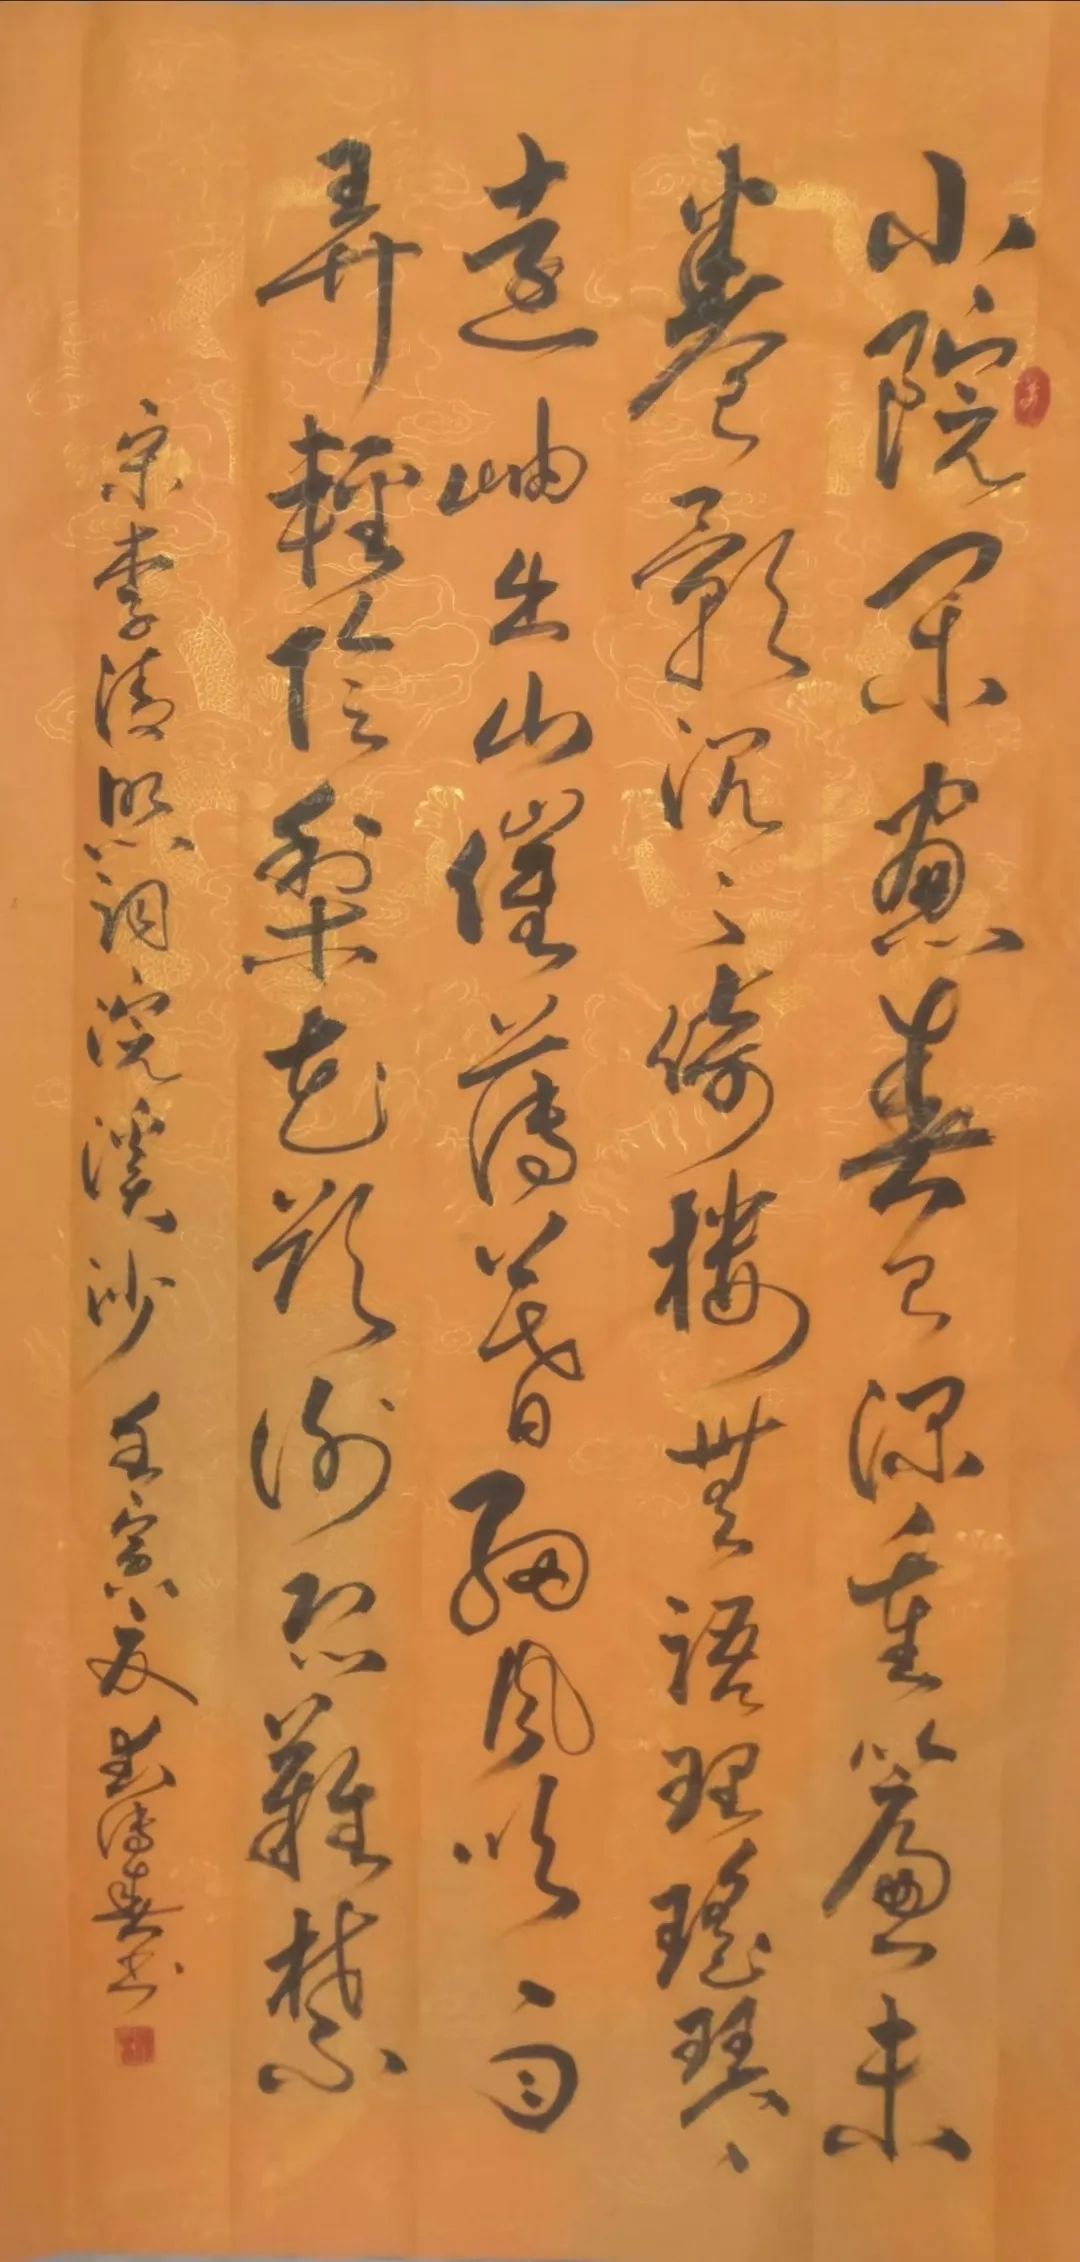 小院闲窗春已深重簾未
卷影沉沉倚楼無語理瑶琴
遠岫出山催薄暮細風吹雨
弄輕陰梨花欲谢恐難禁
宋李清照词浣溪沙 壬寅夏 博春书